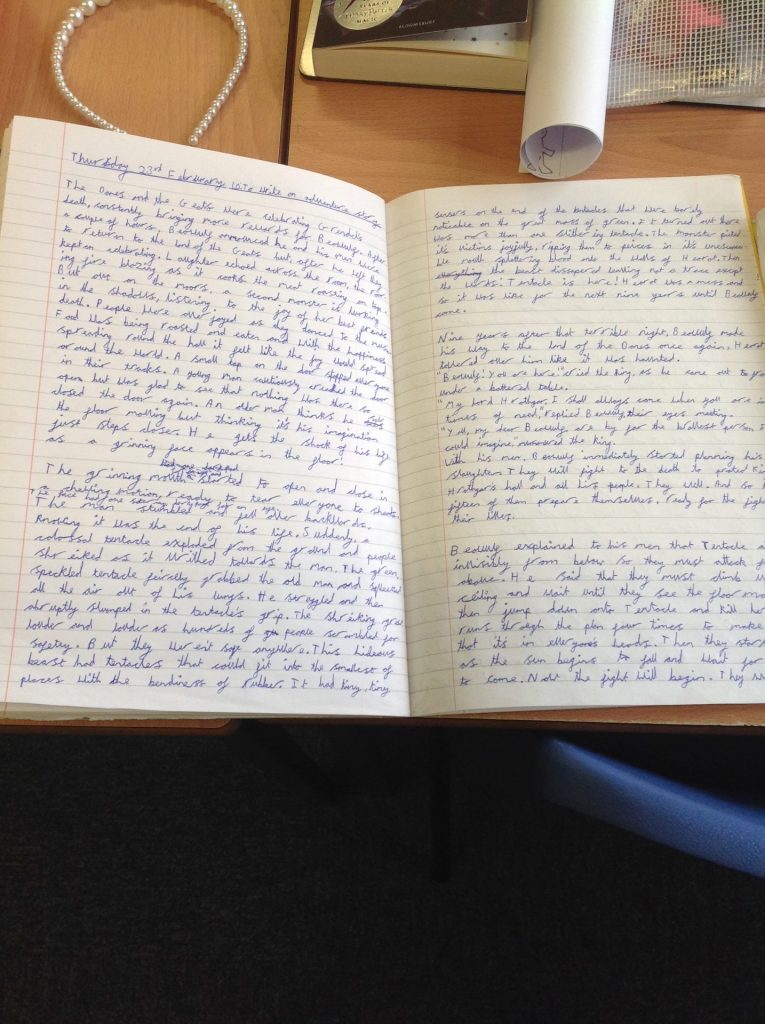 YEARS OF
HARRY POTTER
MAGIC
BLOOMSBURY
Thursday 23rd February LO. To write an adventure story
The Danes and the Geats were celebrating Grendel's
death, constantly bringing more rewards for Beowulf. After
a couple of hours, Beowulf announced he and his men were
to return to the land of the Geats but, after he left they
kept on celebrating. Laughter echoed across the room, the roar-
ing fire blazing as it cooks the meat roasting on top.
But out on the moors, a second monster is lurking
in the shadows, listening to the joy of her best friends
death. People were over joyed as they danced to the music
Food was being roasted and eaten and with the happiness
spreading round the hall it felt like the joy would spread
around the world. A small tap on the door stopped everyone
in their tracks. A young man cautiously creaked the door
open but was glad to see that nothing was there so
closed the door again. An older man thinks he
the floor moving but thinking it's his imagination
just steps closer. He gets the shock of his life
as a grinning face appears in the floor!
The grinning mouth started to open and close in
a chatting motion, ready to tear everyone to shreds.
The face had one
The man stumbled and fell over backwards.
Knowing it was the end of his life. Suddenly, a
colossal tentacle exploded from the ground and people
shreiked as it writhed towards the man. The green,
speckled tentacle feircely grabbed the old man and squeezed
all the air out of his lungs. He struggled and then
abruptly slumped in the tentacle's grip. The shreiking grew
louder and louder as hundreds of people scrambled for
safetey. But they weren't safe anywhere. This hideous
beast had tentacles that could fit into the smallest of
places with the bendiness of rubber. It had tiny, tiny
on the end of the tentacles that were barely
noticable on the great mass of green. It turned out there
was more than one slithering tentacle. The monster
it's victims joyfully, ripping them to peices in it's
mouth splattering blood onto the walls of Heorot. Then
the beast dissapered leaving not a trace except
the words: Tentacle is here! Heorot was a mess and
so it was like for the next nine years until Beowulf
came.
Nine years after that terrible night, Beowulf made
his way to the land of the Danes once again. Heorot
towered over him like it was haunted.
"Beowulf! You are here" cried the king, as he came out
under a battered table.
"My Lord Hrothgar, I shall always come when you are in
times of need," replied Beowulf, their eyes meeting.
"You, my dear Beowulf, are by far the bravest person I
could imagine" answered the king.
With his men, Beowulf immediately started planning his
slaughter. They will fight to the death to protect King
Hrothgar's hall and all his people. They will. And so
fifteen of them prepare themselves. Ready for the fight
their lives.
Beowulf explained to his men that Tentacle
invisibly from below so they must attack
above. He said that they must climb
ceiling and wait until they see the floor
then jump down onto Tentacle and kill her
runs through the plan four times to make
that it's in everyone's heads. Then they
as the sun begins to fall and wait for
to come. Now the fight will begin. They